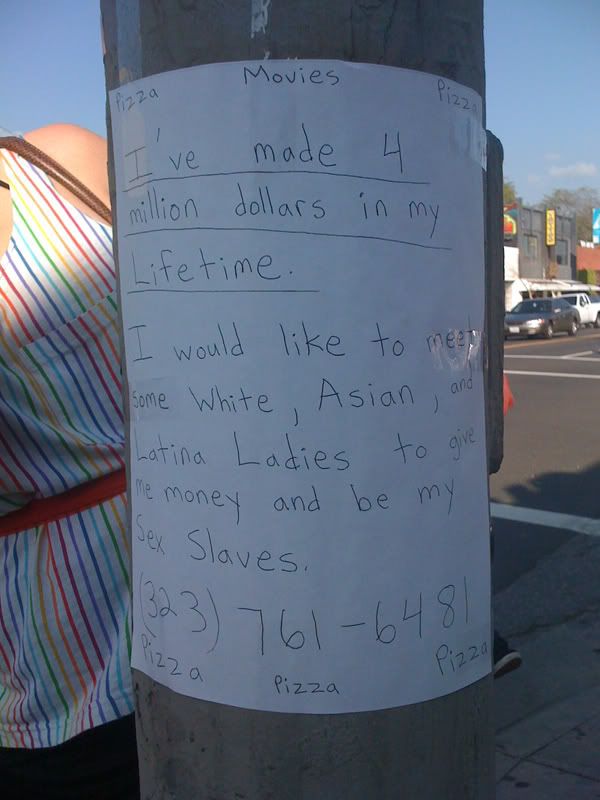 Movies
Pizza Pizza
I've made 4
million dollars in my
Lifetime.
I would like to meet
some White, Asian, and
Latina Ladies to give
me money and be my
Sex Slaves.
(323) 761-6481
Pizza Pizza
Pizza